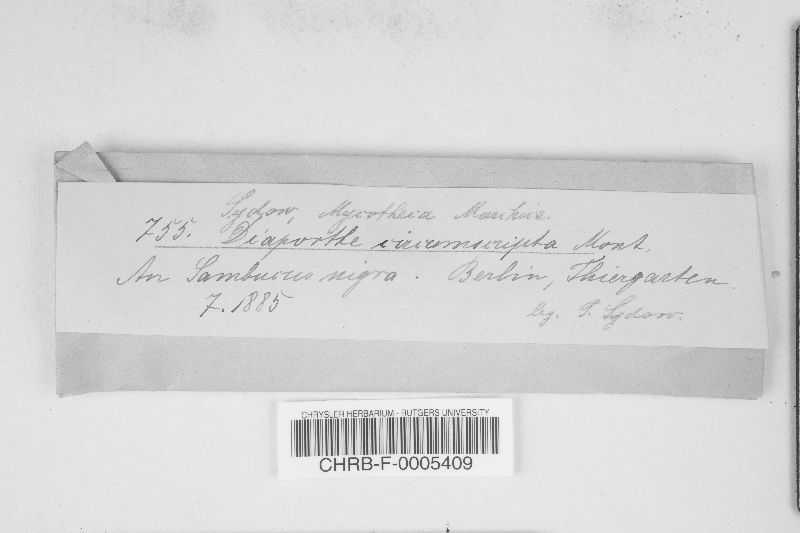 Sydow, Mycotheca Marchica.
755. Diaporthe circumscripta Mont.
An Sambucus nigra. Berlin, Thiergarten.
7. 1885
leg. P. Sydow.
CHRYSLER HERBARIUM - RUTGERS UNIVERSITY
CHRB-F-0005409